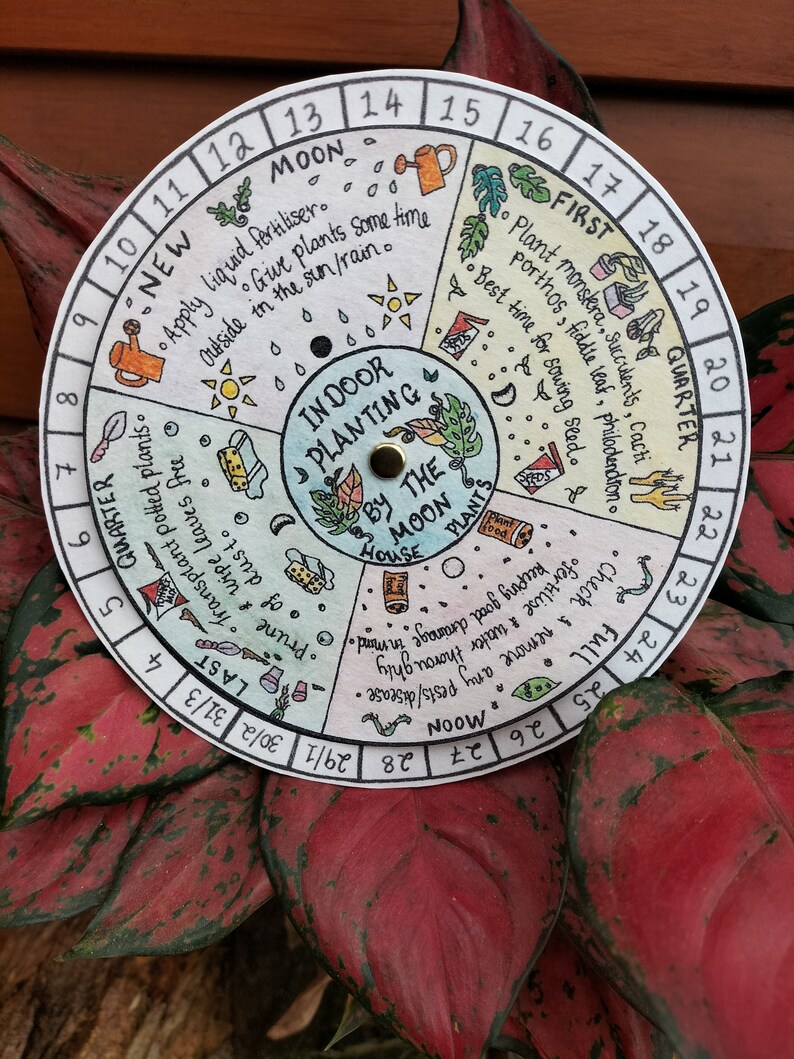 INDOOR
PLANTING
BY THE
MOON
HOUSE PLANTS
NEW MOON
• Apply liquid fertiliser •
• Give plants some time
outside in the sun/rain •
FIRST QUARTER
• Plant monstera, succulents, cacti
porthos, fiddle leaf, philodendron •
• Best time for sowing seed •
SEEDS
SEEDS
FULL MOON
• Check & remove any pests/disease
• fertilise & water thoroughly
keeping good drainage in mind •
Plant food
Plant food
LAST QUARTER
• Transplant potted plants •
• Prune & wipe leaves free
of dust •
29/1
30/2
31/3
4
5
6
7
8
9
10
11
12
13
14
15
16
17
18
19
20
21
22
23
24
25
26
27
28